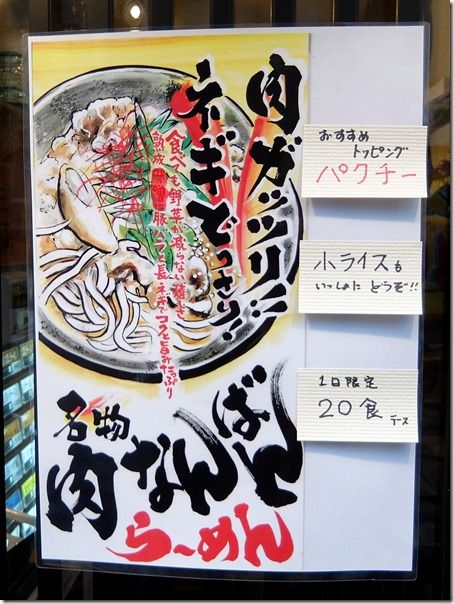 肉ガッツリ!!
ネギどっさり!!
食べても野菜が減らない
熟成豚バラと長ネギでコクと旨みたっぷり
名物
肉なんばん
らーめん
おすすめ
トッピング
パクチー
小ライスも
いっしょに どうぞ!!
1日限定
20食デース